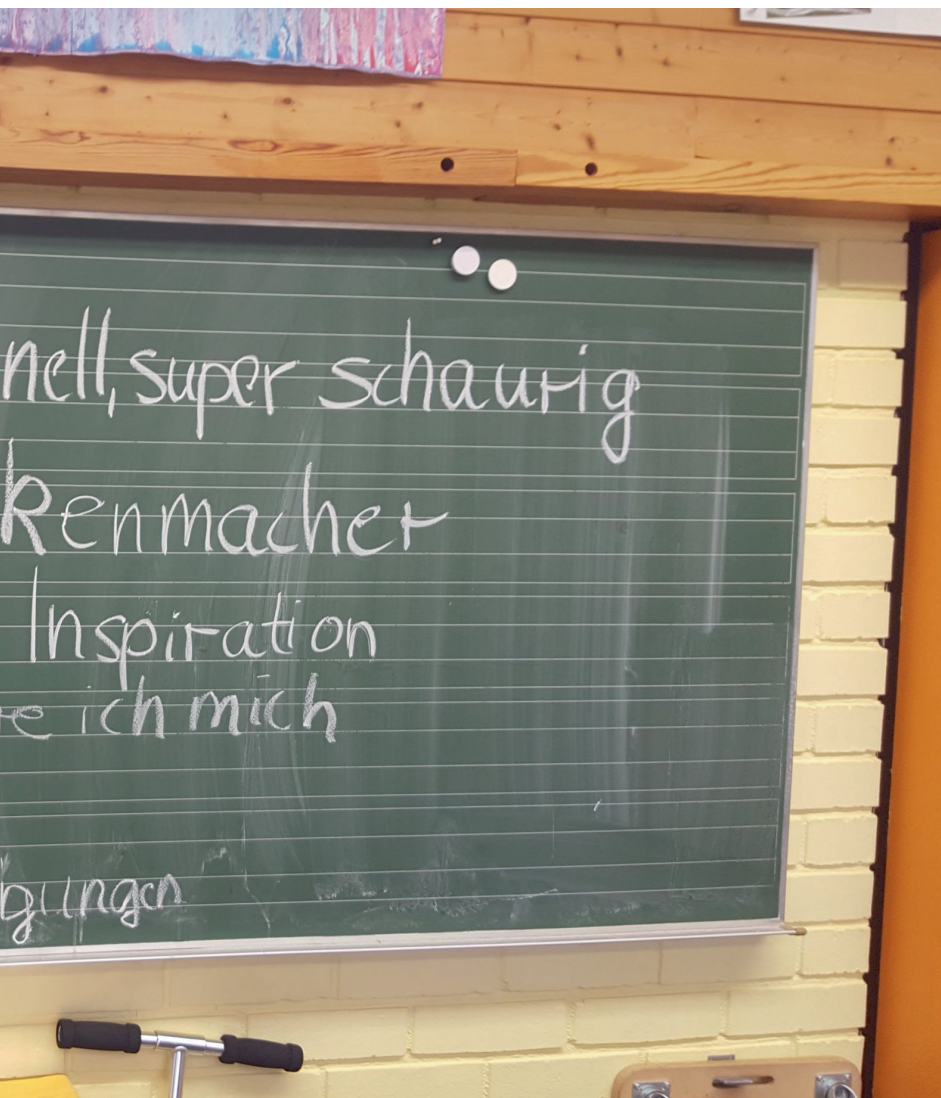 nell, super schaurig
kenmacher
Inspiration
e ich mich
gungen